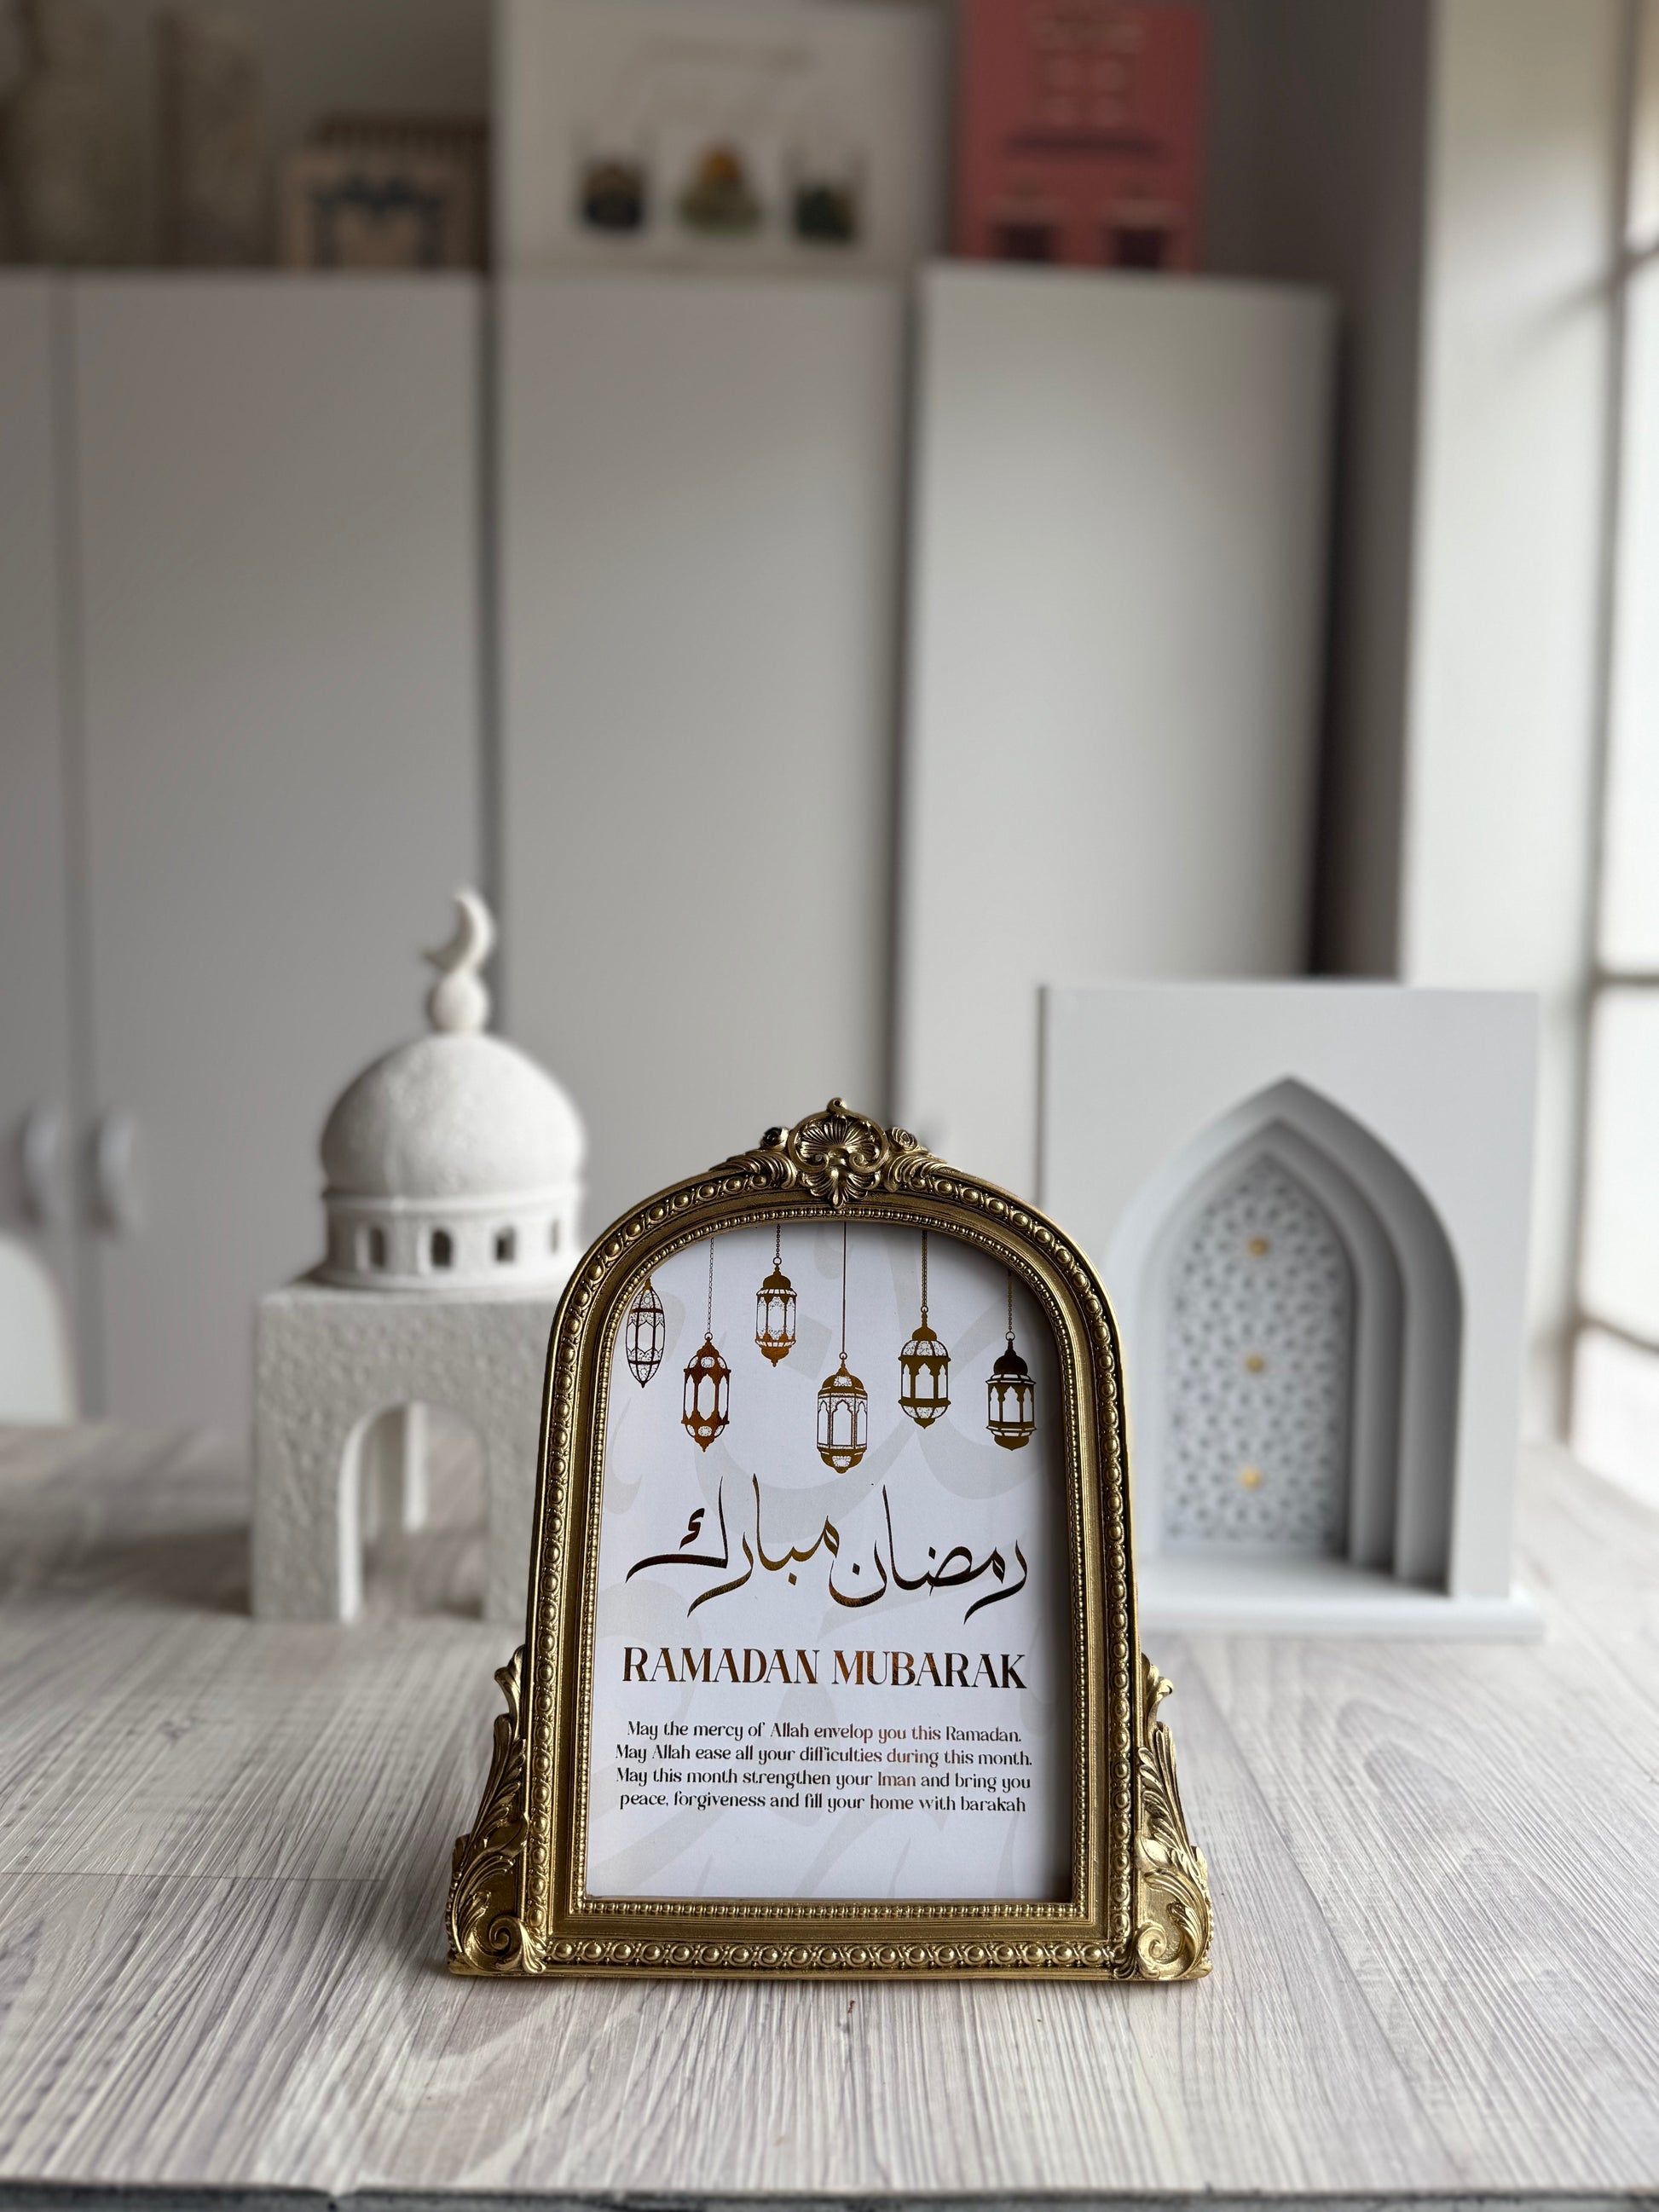 رمضان مبارك
RAMADAN MUBARAK
May the mercy of Allah envelop you this Ramadan.
May Allah ease all your difficulties during this month.
May this month strengthen your Iman and bring you
peace, forgiveness and fill your home with barakah